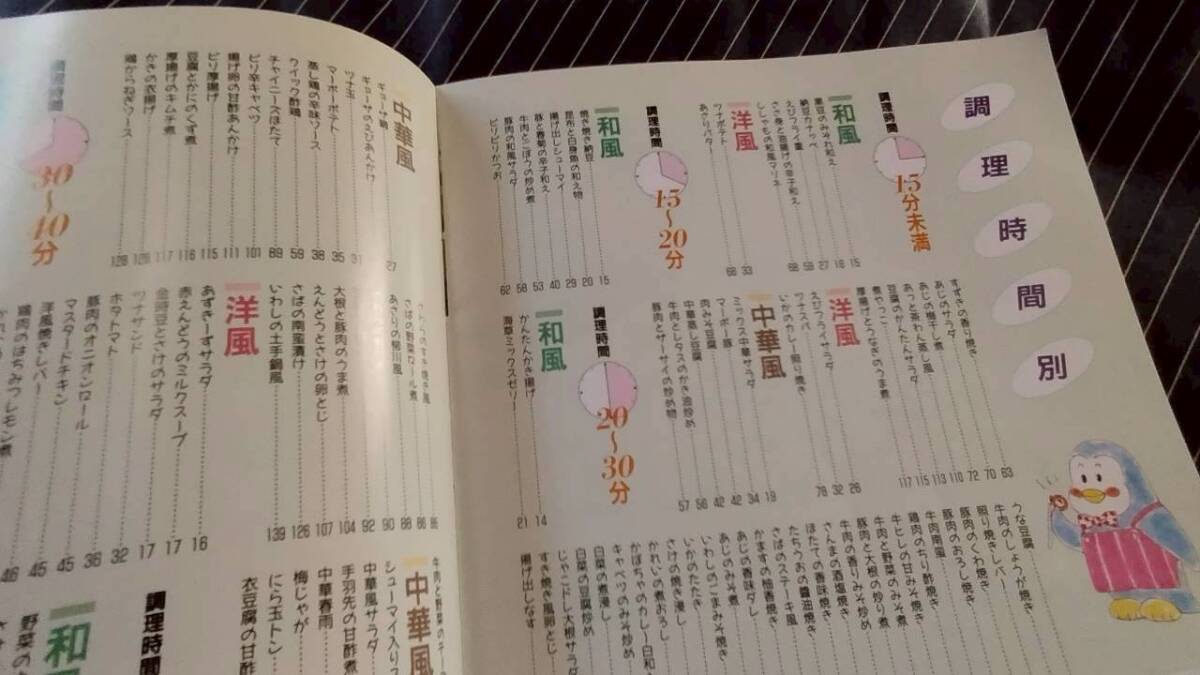 調理時間別
調理時間
15分未満
和風
黒豆のみぞれ和え 15
納豆カナッペ 18
えびフライ重 27
ささ身と油揚げの辛子和え 58
ししゃもの和風マリネ 68
洋風
ツナポテト 33
あさりバター 68
調理時間
15〜20分
和風
焼き焼き納豆 15
昆布と白身魚の和え物 20
揚げ出しシューマイ 29
豚と春菊の辛子和え 40
牛肉とごぼうの炒め煮 53
豚肉の和風サラダ 58
ピリピリかつお 62
すずきの香り焼き 63
あじのサラダ 70
あじの梅干し煮 72
あっと茶わん蒸し風 110
豆腐のかんたんサラダ 113
煮やっこ 115
厚揚げとうなぎのうま煮 117
洋風
えびフライサラダ 26
ツナスパ 32
いかのカレー照り焼き 78
中華風
ミックス中華サラダ 19
マーボー豚 34
肉みそ豆腐 42
中華蒸し豆腐 42
牛肉とレタスのかき油炒め 56
豚肉とザーサイの炒め物 57
調理時間
20〜30分
和風
かんたんかき揚げ 14
海草ミックスゼリー 21
うな豆腐
牛肉のしょうが焼き
照り焼きレバー
豚肉のくわ焼き
豚肉のおろし焼き
牛肉南風
鶏肉のちり酢焼き
牛ヒレの甘みそ焼き
牛肉と野菜のみそ煮
豚肉と大根の炒り煮
牛肉の香りみそ炒め
さんまの酒塩焼き
ほたての香味焼き
たちうおの醤油焼き
さばのステーキ風
かますの柚香焼き
あじの香味ダレ
あじのみそ煮
いわしのごまみそ焼き
いかのたたき
さけの焼き浸し
かれいの煮おろし
かぼちゃのカレー白和
キャベツのみそ炒め
白菜の煮浸し
白菜の豆腐炒め
じゃこドレ大根サラダ
すき焼き風卵とじ
揚げ出しなす
中華風
ギョーザ鍋 27
ギョーザのえびあんかけ 31
ツナ玉 35
マーボーポテト 38
蒸し鶏の辛味ソース 59
クイック酢鶏 89
チャイニーズほたて 101
ピリ辛キャベツ 111
揚げ卵の甘酢あんかけ 115
ピリ厚揚げ 116
豆腐とかにのくず煮 117
厚揚げのキムチ煮 128
かきの衣揚げ 128
鶏からねぎソース
調理時間
30〜40分
すき焼き風 86
さばの野菜ロール煮 88
あさりの柳川風 90
大根と豚肉のうま煮 104
えんどうとさけの卵とじ 107
さばの南蛮漬け 126
いわしの土手鍋風 139
洋風
あずきーずサラダ 16
赤えんどうのミルクスープ 17
金時豆とさけのサラダ 17
ツナサンド 32
ホタトマト 36
豚肉のオニオンロール 45
マスタードチキン 45
洋風焼きレバー 46
鶏肉のはちみつレモン煮
中華風
牛肉と野菜の
シューマイ入り
中華風サラダ
手羽先の甘酢煮
中華春雨
梅じゃが
にら玉トン
衣豆腐の甘酢
調理時間
和
野菜の